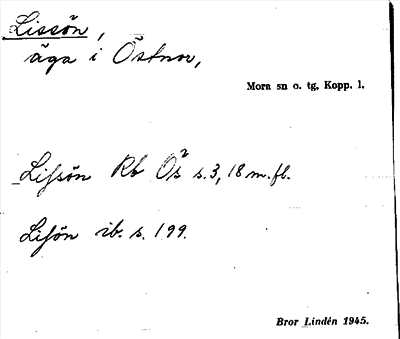 Lissön,
äga i Östnor,
Mora sn o. tg, Kopp. l.
Lifsön Rb Ös² s. 3, 18 m. fl.
Lifön ib. s. 199.
Bror Lindén 1945.